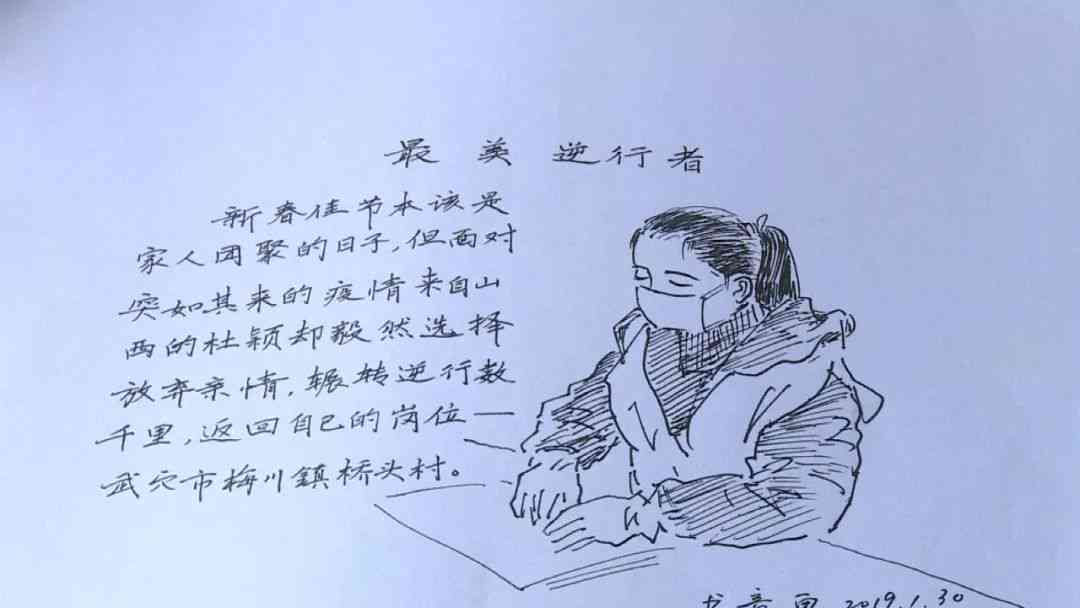 最美逆行者
新春佳节本该是
家人团聚的日子,但面对
突如其来的疫情来自山
西的杜颖却毅然选择
放弃亲情,辗转逆行数
千里,返回自己的岗位一
武穴市梅川鎮桥头村。
2019.1.30